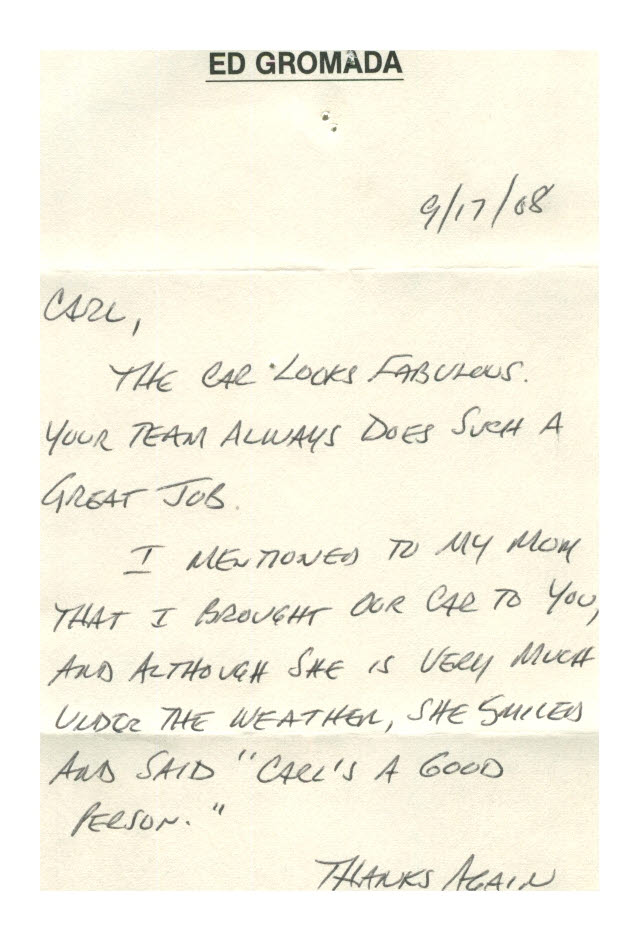 ED GROMADA
9/17/08
CARL,
THE CAR LOOKS FABULOUS.
YOUR TEAM ALWAYS DOES SUCH A
GREAT JOB.
I MENTIONED TO MY MOM
THAT I BROUGHT OUR CAR TO YOU,
AND ALTHOUGH SHE IS VERY MUCH
UNDER THE WEATHER, SHE SMILED
AND SAID "CARL'S A GOOD
PERSON."
THANKS AGAIN